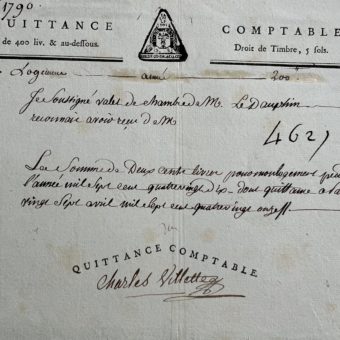 1790
QUITTANCE COMPTABLE
de 400 liv. & au-dessous. Droit de Timbre, 5 sols.
Logement année 200ᵗ
Je Soussigné valet de chambre de M. Le Dauphin
reconnais avoir reçu de M
4627
La Somme de Deux cents livres pour mon logement
l'année mil Sept cent quatrevingt Dix dont quittance a
vingt Sept avril mil Sept cent quatrevingt onze
QUITTANCE COMPTABLE
Charles Villette